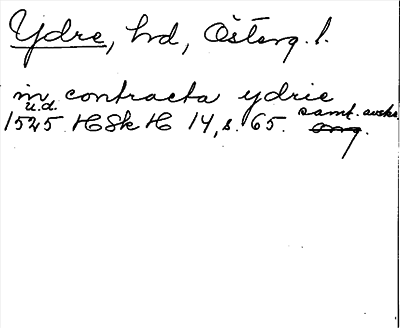 Ydre, hd, Österg. l.
in contracta ydrie
u.d. samt. avskr.
1525 HSkH 14, s. 65. orig.